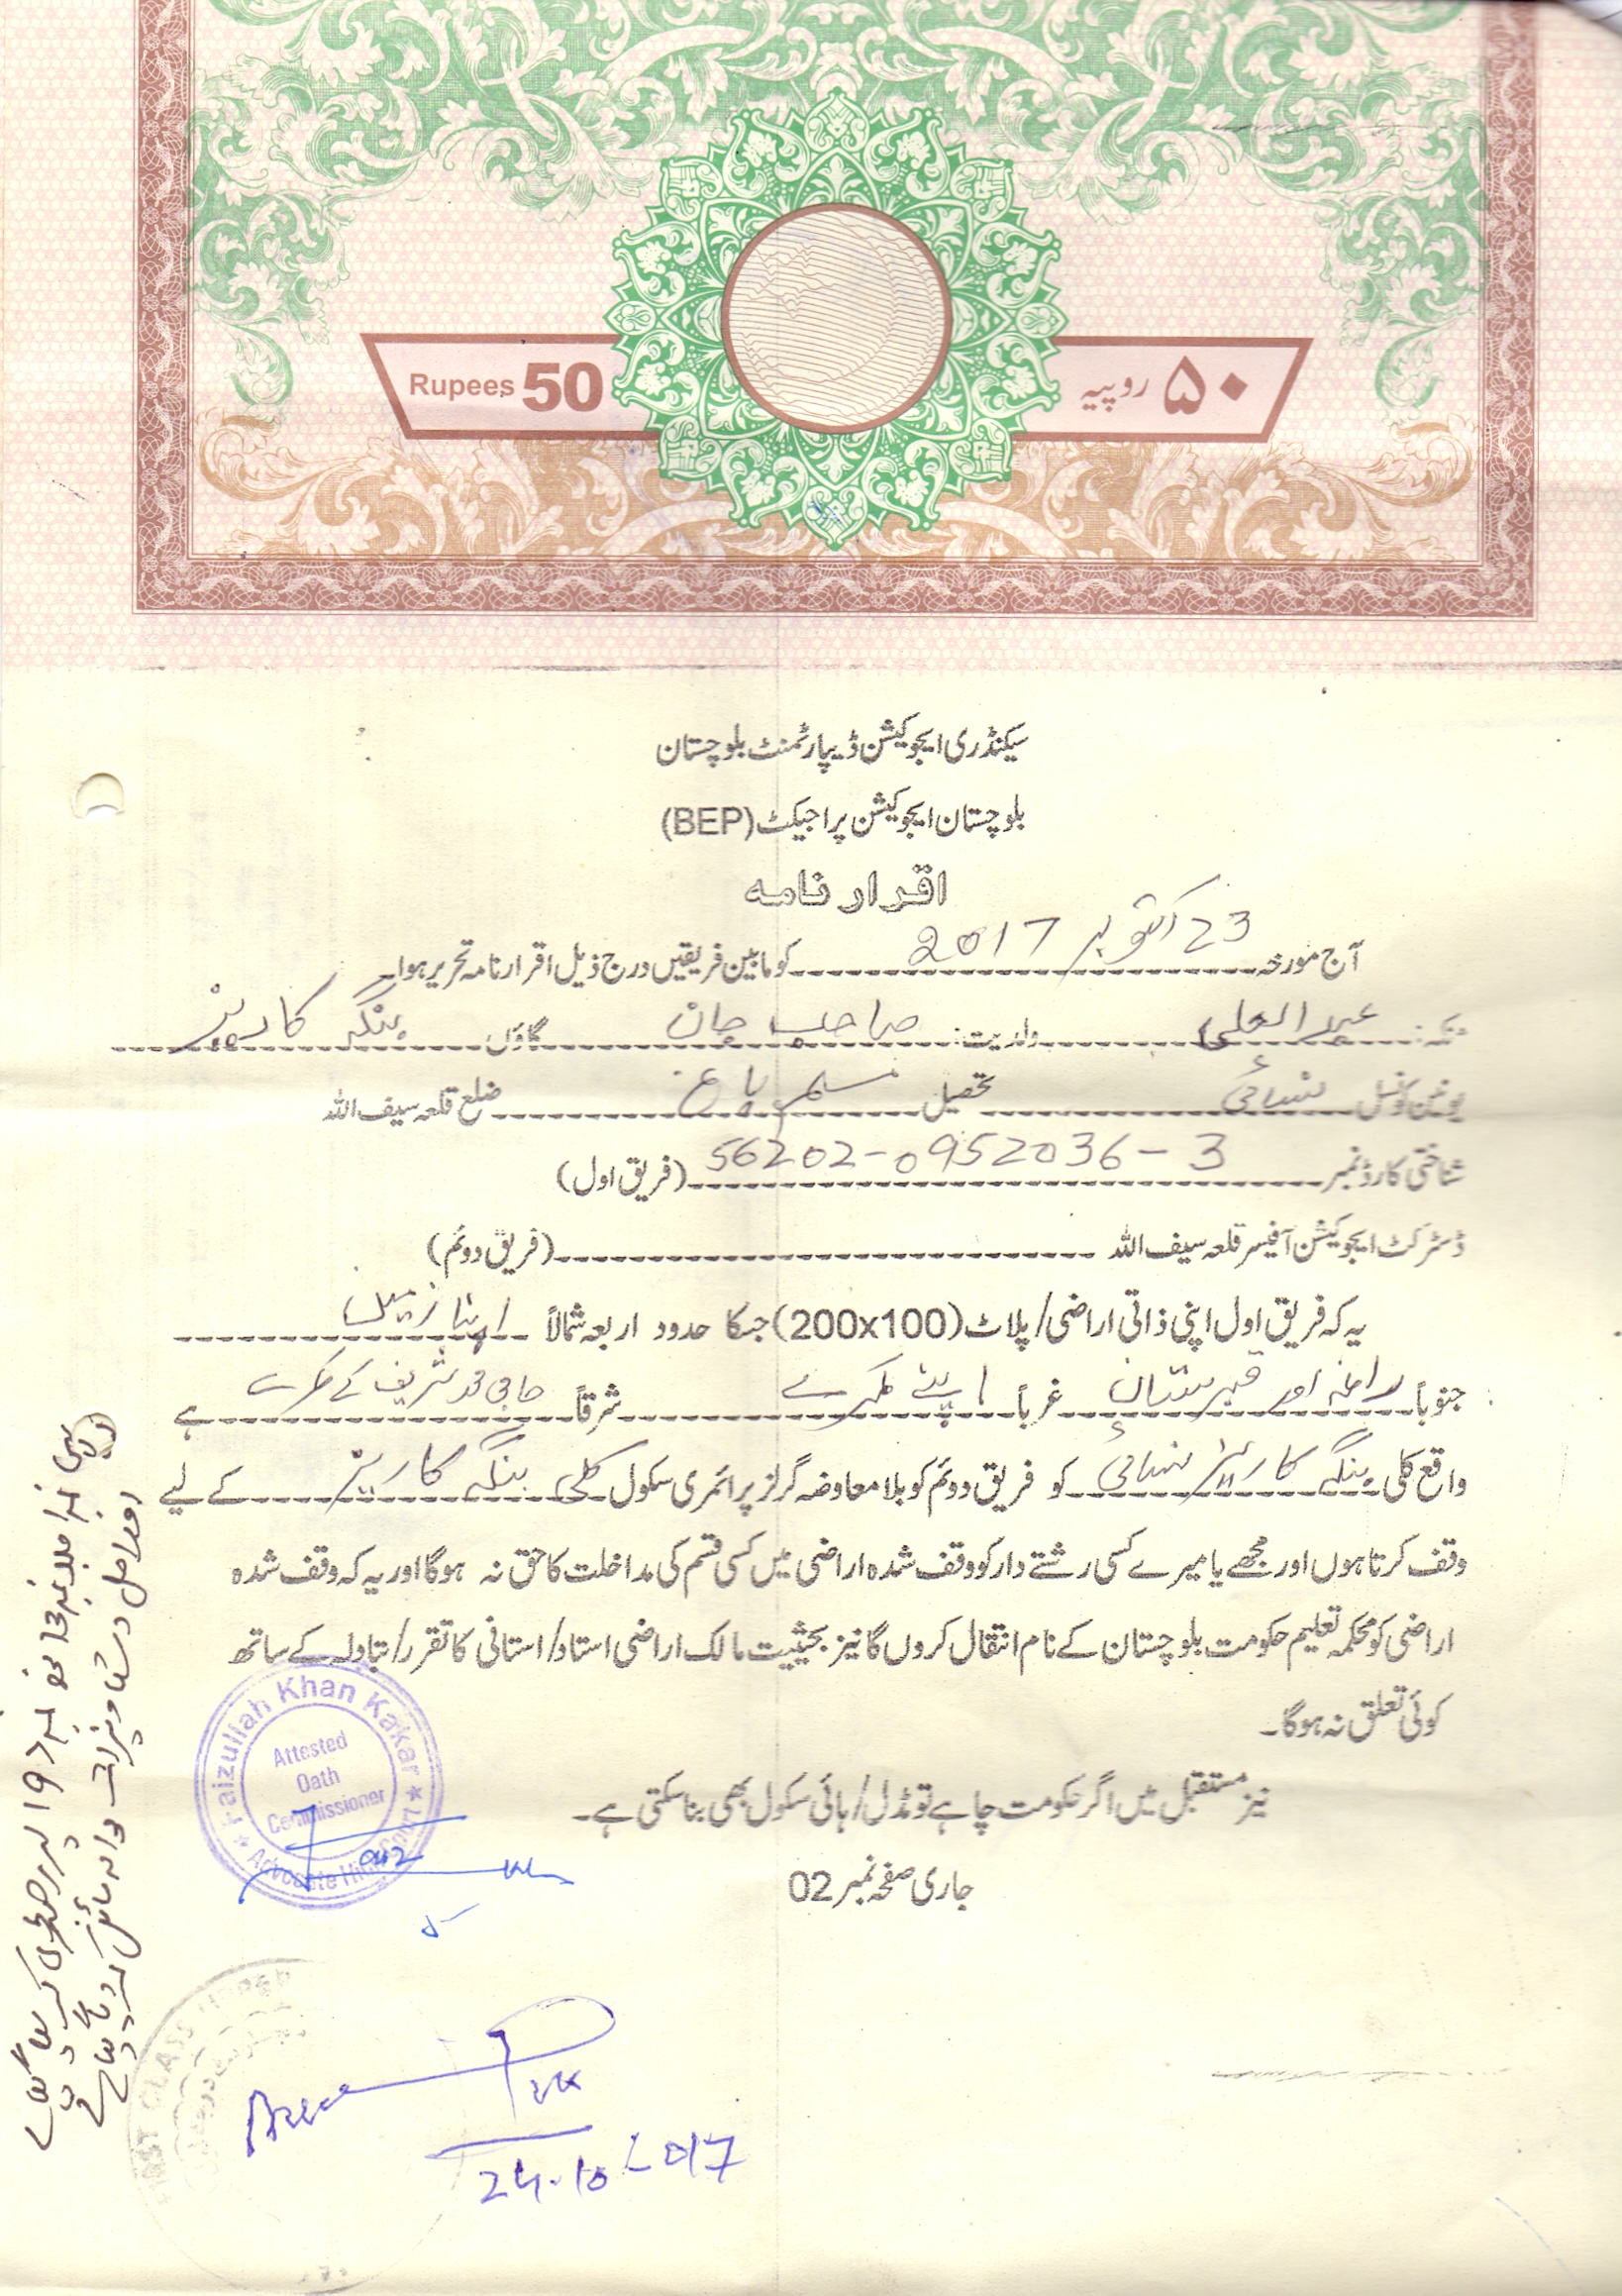 Rupees 50
۵۰ روپیہ
سیکنڈری ایجوکیشن ڈیپارٹمنٹ بلوچستان
بلوچستان ایجوکیشن پراجیکٹ (BEP)
اقرار نامہ
آج مورخہ 23 اکتوبر 2017 کو مابین فریقین درج ذیل اقرار نامہ تحریر ہوا۔
منکہ: عبدالعلی ولدیت: صاحب جان گاؤں بنگہ کاریز
یونین کونسل نسائی تحصیل مسلم باغ ضلع قلعہ سیف اللہ
شناختی کارڈ نمبر 56202-0952036-3 (فریق اول)
ڈسٹرکٹ ایجوکیشن آفیسر قلعہ سیف اللہ (فریق دوئم)
یہ کہ فریق اول اپنی ذاتی اراضی/پلاٹ (200x100) جسکا حدود اربعہ شمالاً اپنا زمین
جنوباً راستہ اور قبرستان غرباً اپنے شرقاً حاجی محمد شریف کے ہے
واقع کلی بنگہ کاریز نسائی کو فریق دوئم کو بلا معاوضہ گرلز پرائمری سکول کلی بنگہ کاریز کے لیے
وقف کرتا ہوں اور مجھے یا میرے کسی رشتے دار کو وقف شدہ اراضی میں کسی قسم کی مداخلت کا حق نہ ہوگا اور یہ کہ وقف شدہ
اراضی کو محکمہ تعلیم حکومت بلوچستان کے نام انتقال کروں گا نیز بحیثیت مالک اراضی استاد/استانی کا تقرر/تبادلہ کے ساتھ
کوئی تعلق نہ ہوگا۔
نیز مستقبل میں اگر حکومت چاہے تو مڈل/ہائی سکول بھی بنا سکتی ہے۔
جاری صفحہ نمبر 02
Faizullah Khan Kakar
Attested
Oath
Commissioner
Advocate High Court
24.10.2017